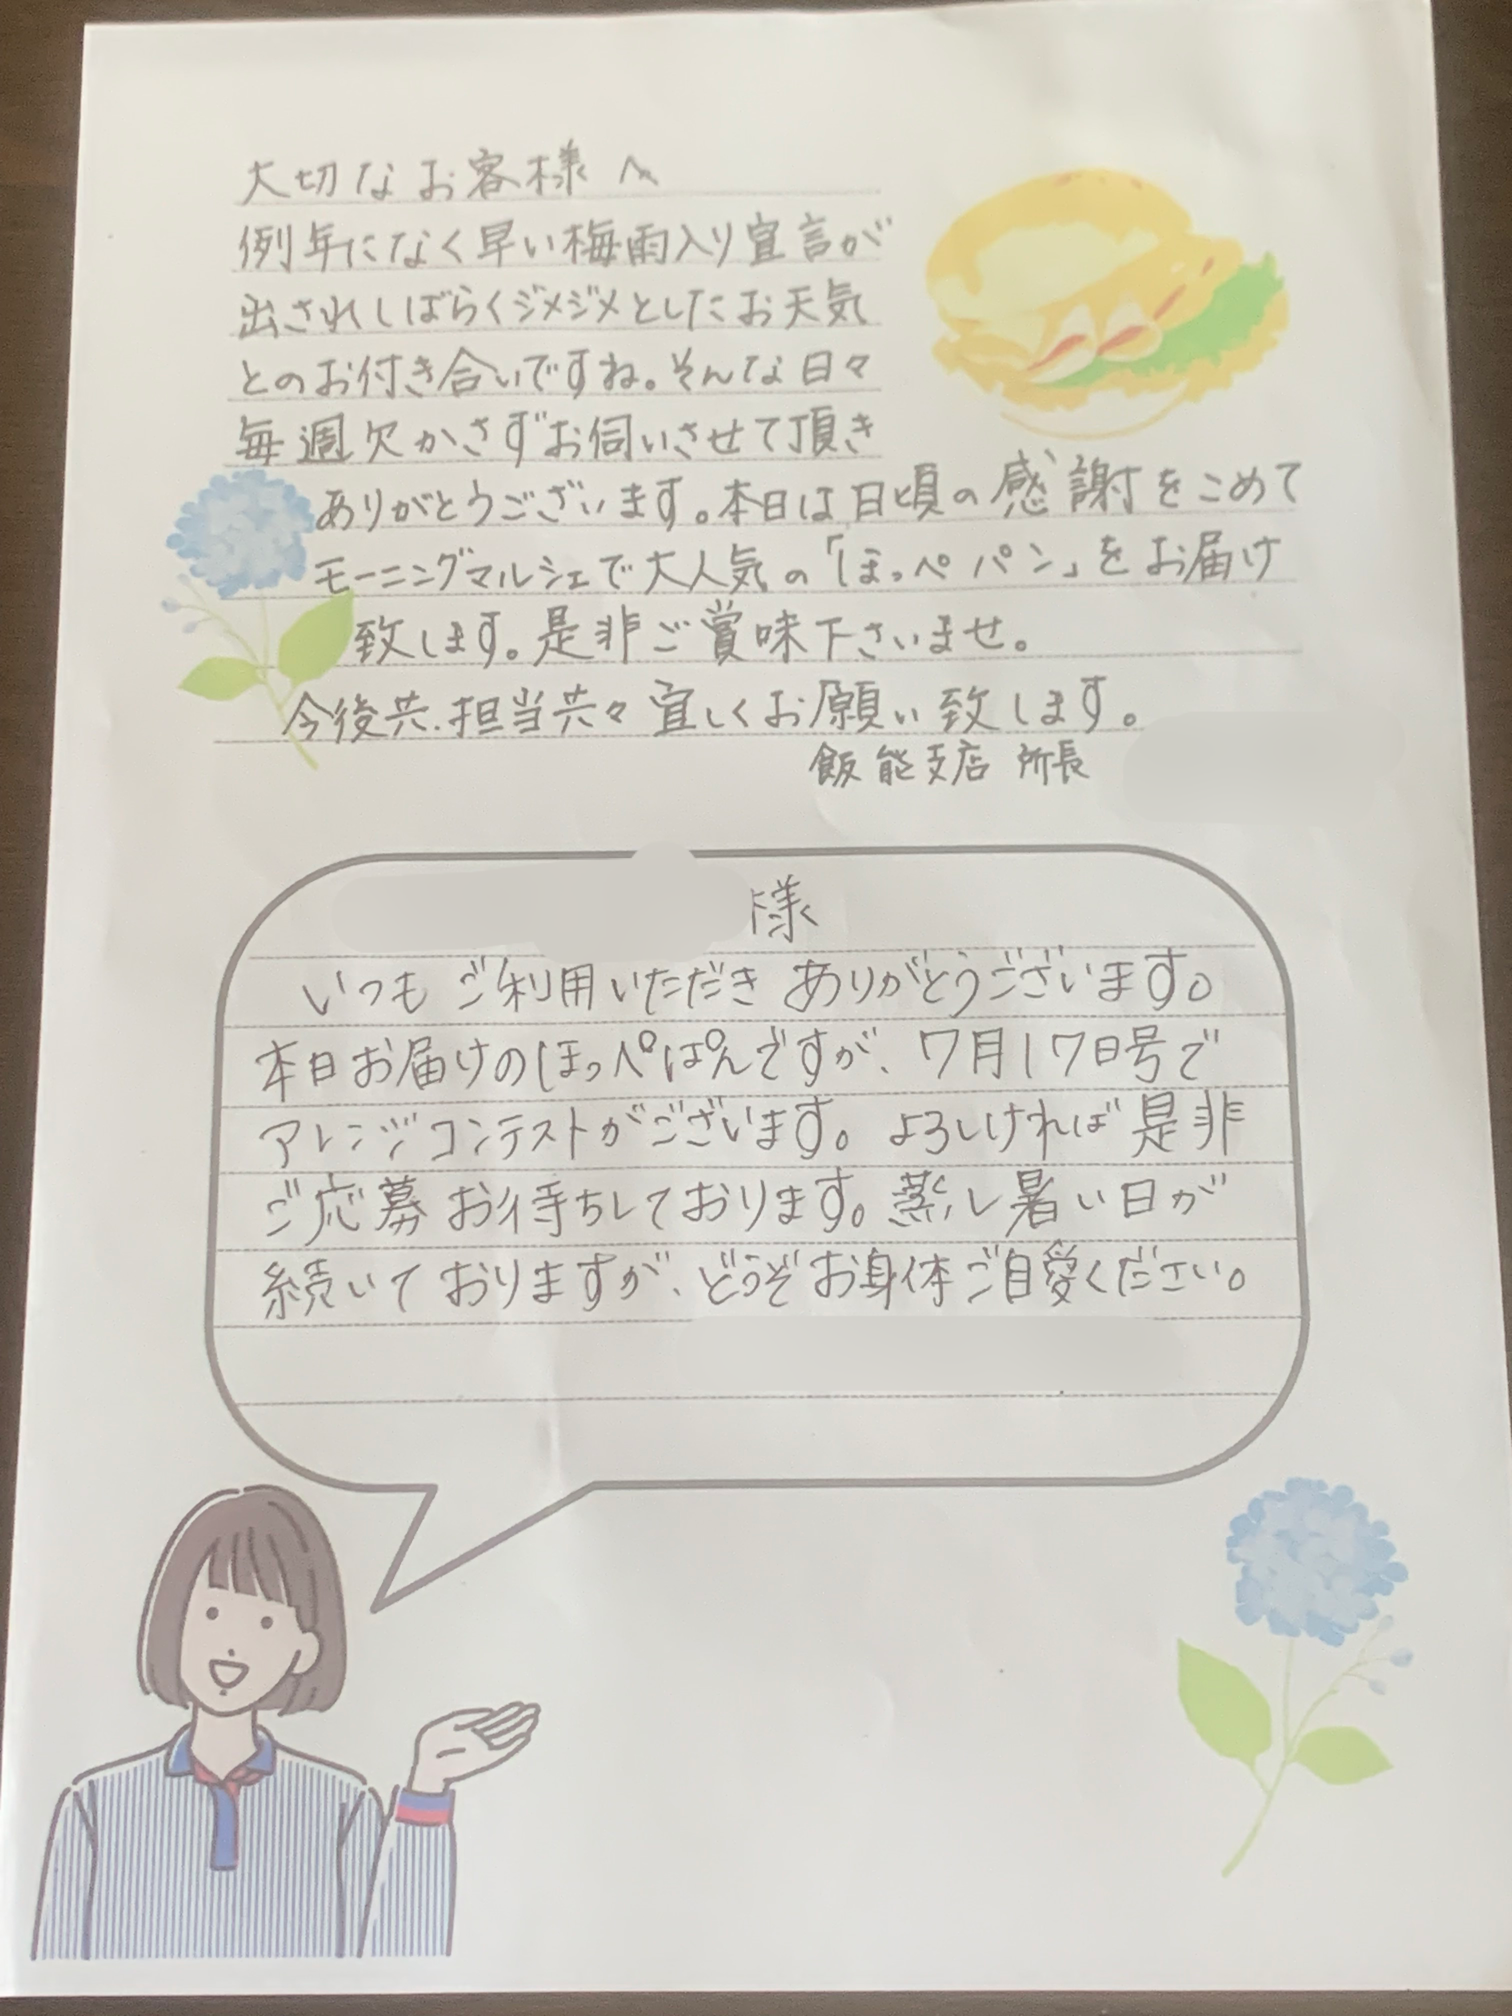 大切なお客様へ
例年になく早い梅雨入り宣言が
出されしばらくジメジメとしたお天気
とのお付き合いですね。そんな日々
毎週欠かさずお伺いさせて頂き
ありがとうございます。本日は日頃の感謝をこめて
モーニングマルシェで大人気の「ほっぺパン」をお届け
致します。是非ご賞味下さいませ。
今後共、担当共々宜しくお願い致します。
飯能支店 所長
様
いつもご利用いただきありがとうございます。
本日お届けのほっぺぱんですが、7月17日号で
アレンジコンテストがございます。よろしければ是非
ご応募お待ちしております。蒸し暑い日が
続いておりますが、どうぞお身体ご自愛ください。